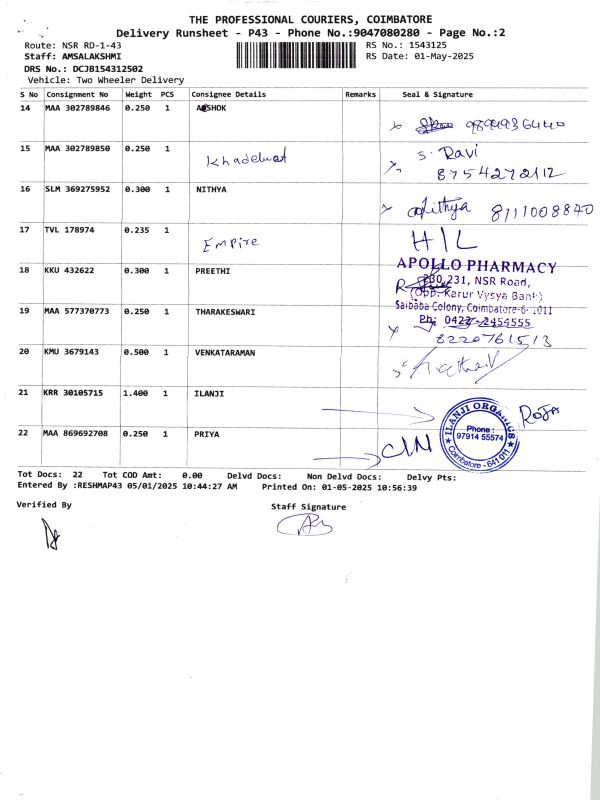 THE PROFESSIONAL COURIERS, COIMBATORE
Delivery Runsheet - P43 - Phone No.:9047080280 - Page No.:2
Route: NSR RD-1-43
RS No.: 1543125
Staff: AMSALAKSHMI
RS Date: 01-May-2025
DRS No.: DCJB154312502
Vehicle: Two Wheeler Delivery
S No Consignment No Weight PCS Consignee Details Remarks Seal & Signature
14 MAA 302789846 0.250 1 ASHOK
15 MAA 302789850 0.250 1
S. Ravi
8754272112
16 SLM 369275952 0.300 1 NITHYA
Nithya 8111008840
17 TVL 178974 0.235 1 Empire
H/L
18 KKU 432622 0.300 1 PREETHI
APOLLO PHARMACY
230,231, NSR Road,
(Opp. Karur Vysya Bank)
19 MAA 577370773 0.250 1 THARAKESWARI
Saibaba Colony, Coimbatore-6 1011
Ph: 0422-2454555
8220761513
20 KMU 3679143 0.500 1 VENKATARAMAN
21 KRR 30105715 1.400 1 ILANJI
ILANJI ORGANICS
Phone :
97914 55574
Coimbatore - 641 011
Roja
22 MAA 869692708 0.250 1 PRIYA
C/N
Tot Docs: 22 Tot COD Amt: 0.00 Delvd Docs: Non Delvd Docs: Delvy Pts:
Entered By :RESHMAP43 05/01/2025 10:44:27 AM Printed On: 01-05-2025 10:56:39
Verified By
Staff Signature